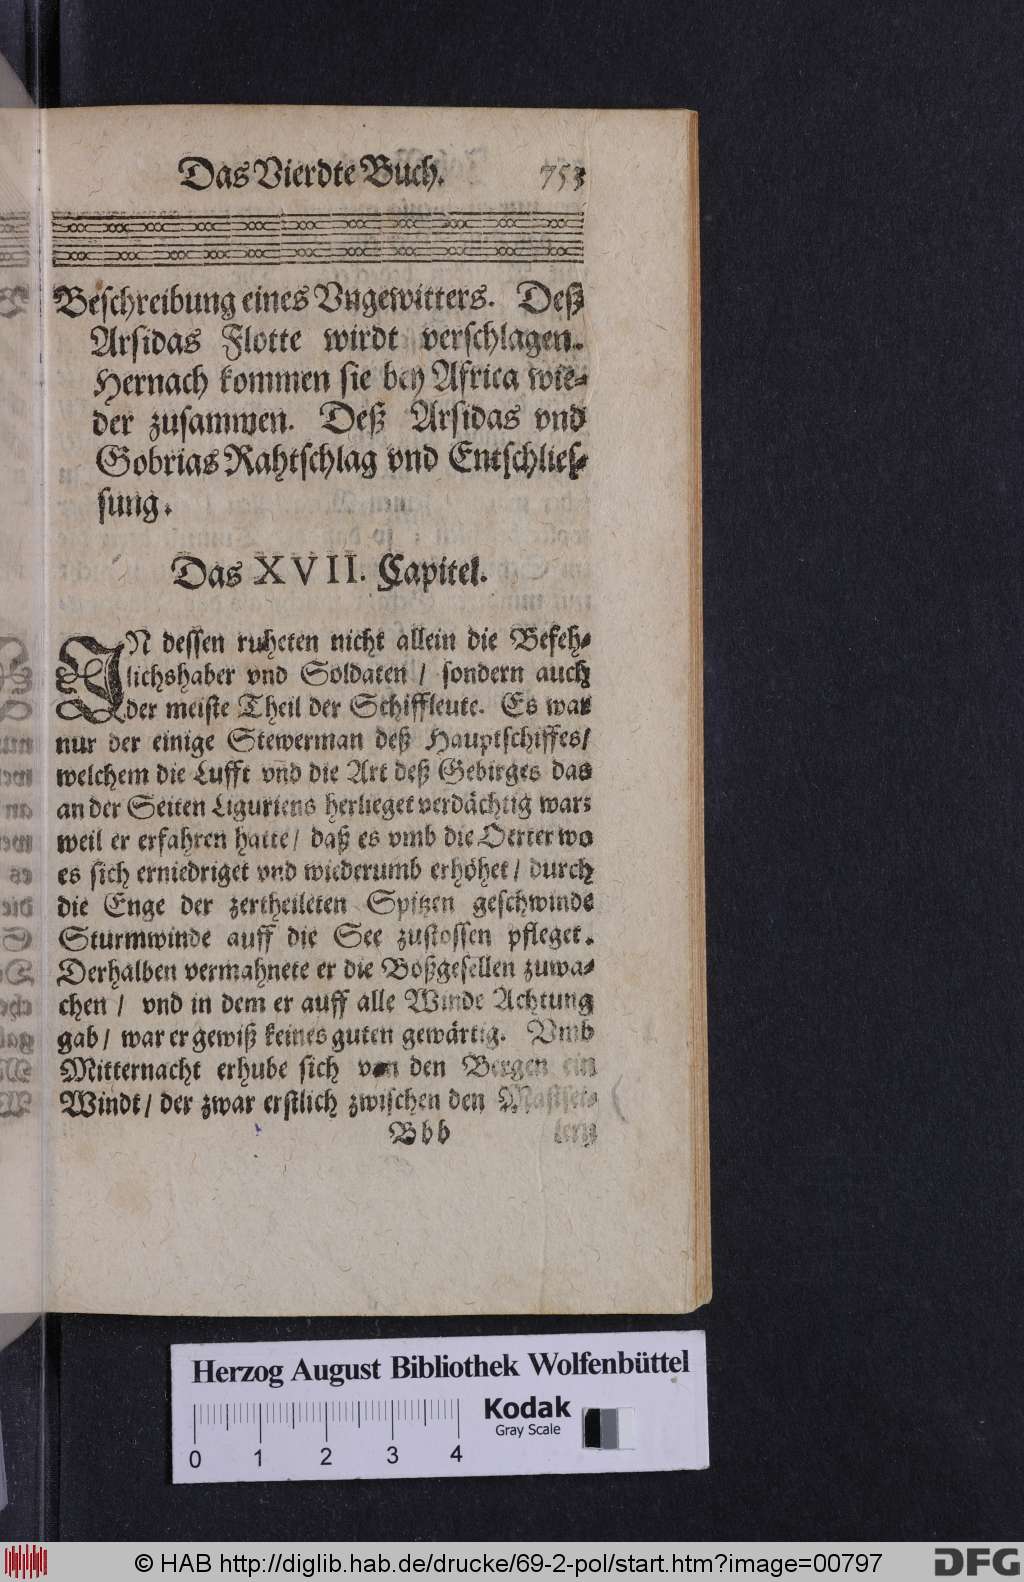 Das Vierdte Buch. 753
Beschreibung eines Vngewitters. Deß
Arsidas Flotte wirdt verschlagen.
Hernach kommen sie bey Africa wie-
der zusammen. Deß Arsidas vnd
Gobrias Rahtschlag vnd Entschlies-
sung.
Das XVII. Capitel.
IN dessen ruheten nicht allein die Befeh-
lichshaber vnd Soldaten / sondern auch
der meiste Theil der Schiffleute. Es war
nur der einige Stewerman deß Hauptschiffes/
welchem die Lufft vnd die Art deß Gebirges das
an der Seiten Liguriens herlieget verdächtig war:
weil er erfahren hatte / daß es vmb die Oerter wo
es sich erniedriget vnd wiederumb erhöhet / durch
die Enge der zertheileten Spitzen geschwinde
Sturmwinde auff die See zustossen pfleget.
Derhalben vermahnete er die Boßgesellen zuwa-
chen / vnd in dem er auff alle Winde Achtung
gab / war er gewiß keines guten gewärtig. Vmb
Mitternacht erhube sich von den Bergen ein
Windt / der zwar erstlich zwischen den Mastsei-
Bbb lern
Herzog August Bibliothek Wolfenbüttel
Kodak
Gray Scale
0 1 2 3 4
© HAB http://diglib.hab.de/drucke/69-2-pol/start.htm?image=00797
DFG